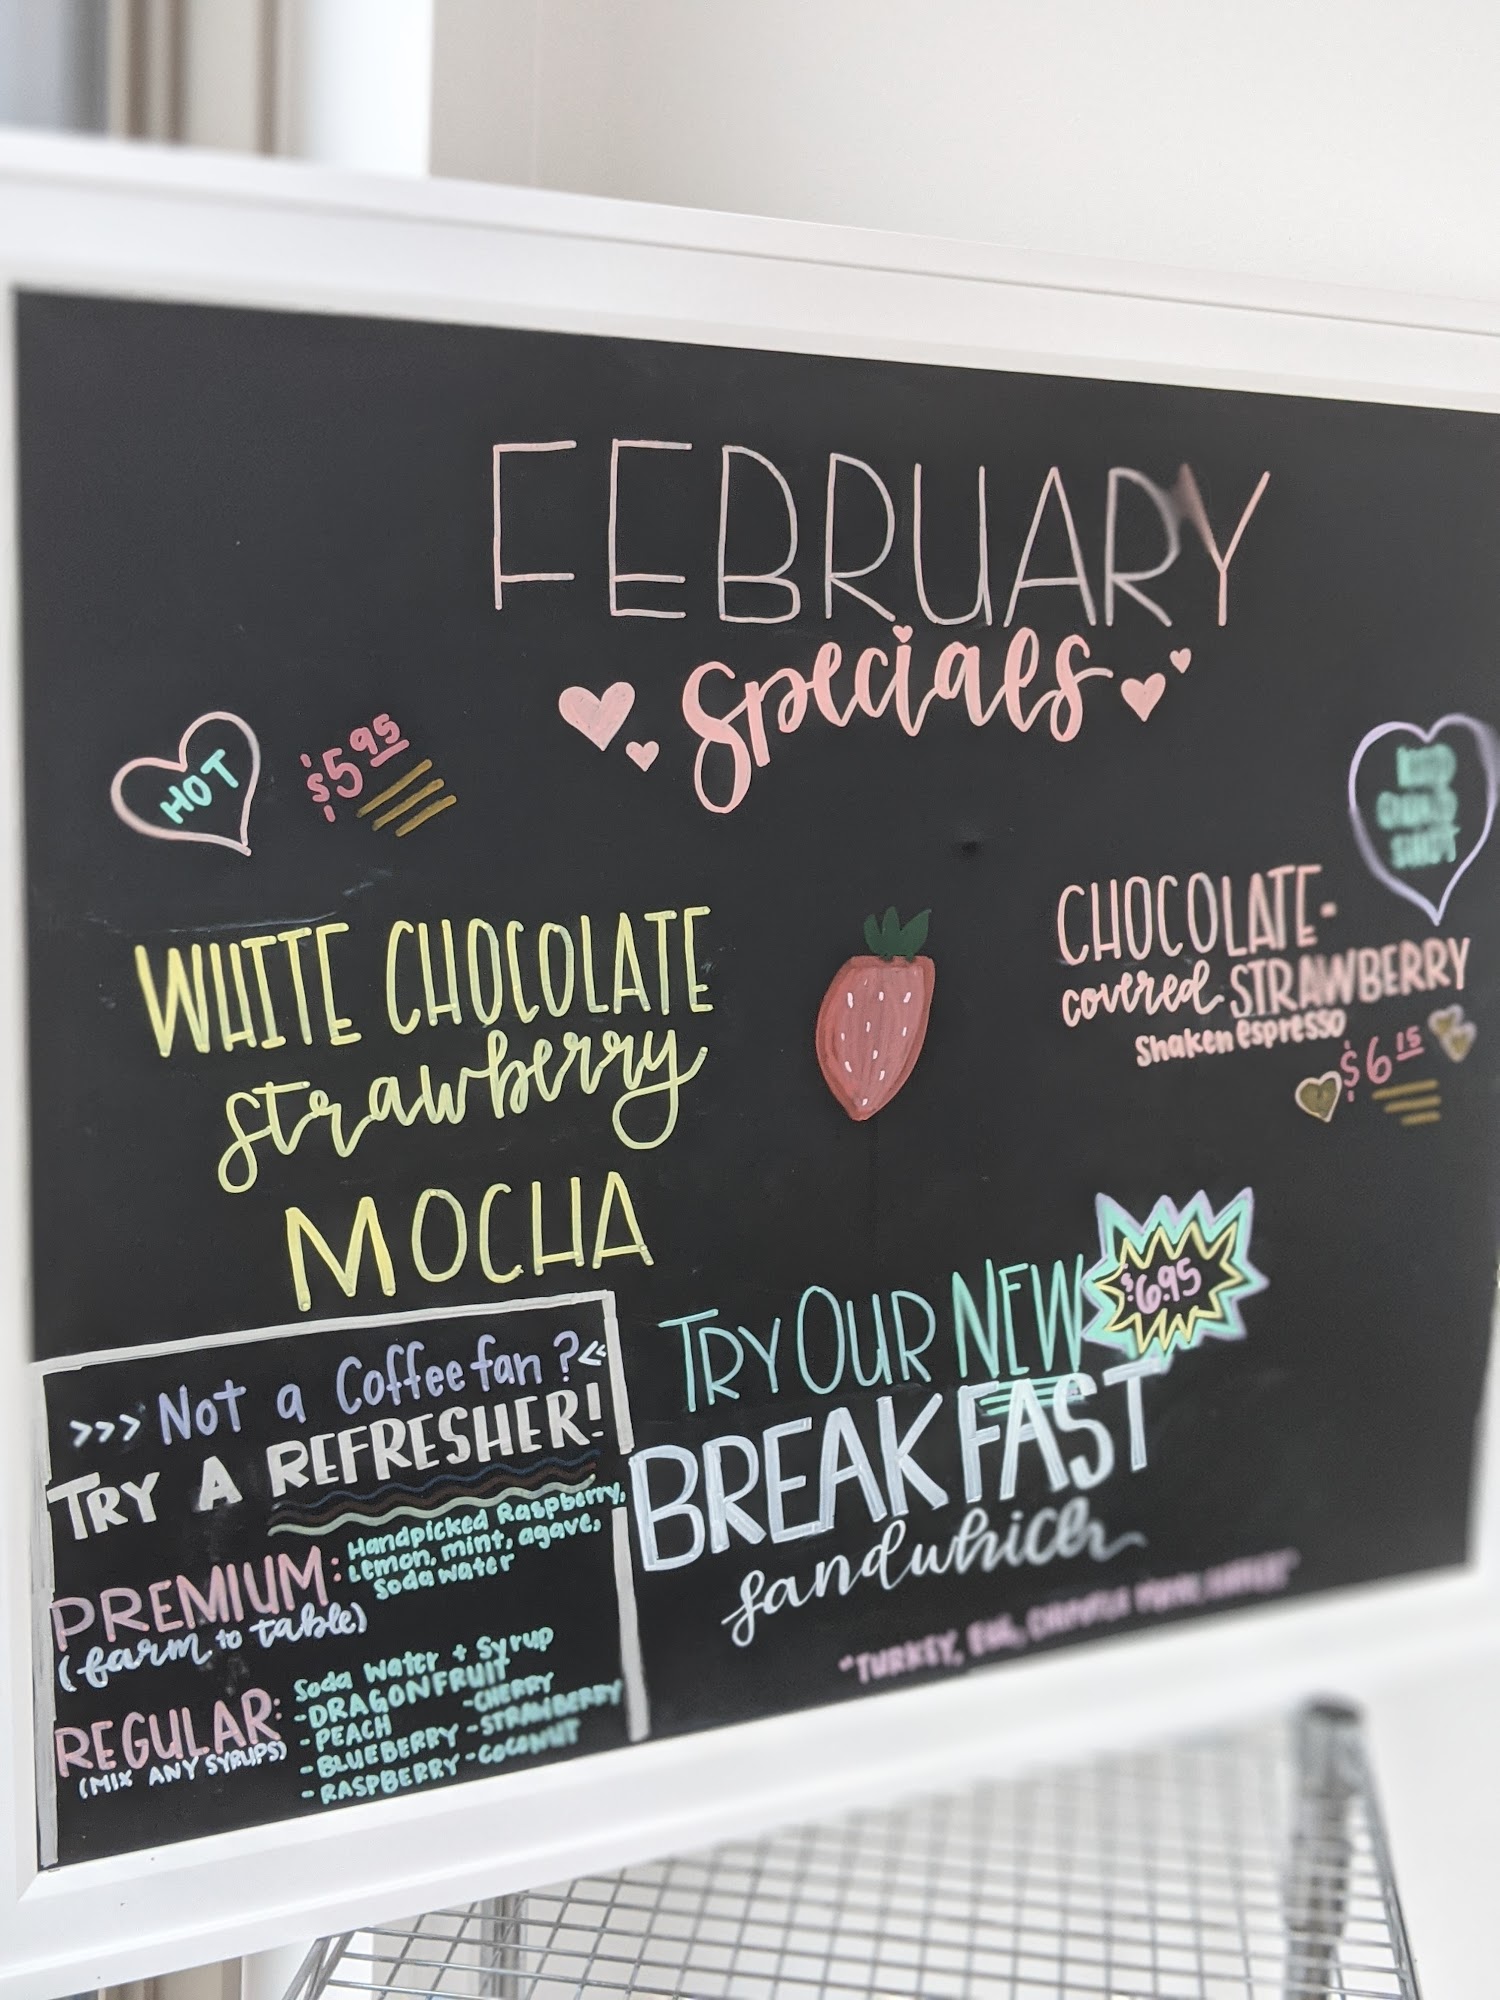 FEBRUARY
specials
HOT
$5.95
WHITE CHOCOLATE
strawberry
MOCHA
SHOT
CHOCOLATE-
covered STRAWBERRY
Shaken espresso
$6.15
>>> Not a Coffee fan? <<
TRY A REFRESHER!
PREMIUM:
(farm to table)
Handpicked Raspberry,
Lemon, mint, agave,
Soda water
REGULAR:
(MIX ANY SYRUPS)
Soda Water + Syrup
-DRAGONFRUIT
-CHERRY
-PEACH
-STRAWBERRY
-BLUEBERRY
-COCONUT
-RASPBERRY
TRY OUR NEW
$6.95
BREAKFAST
sandwhich
"TURKEY, EGG, CHIPOTLE